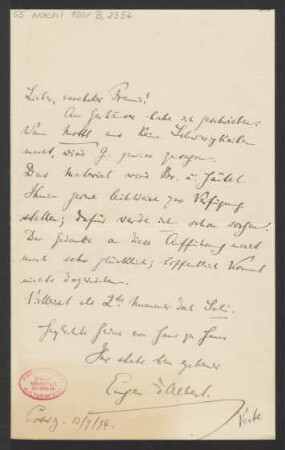 55 Nachl 100/B, 2354
Lieber, verehrter Freund!
An Gerhäuser habe ich geschrieben.
Wenn Mottl uns keine Schwierigkeiten
macht, wird G. gewiss zusagen.
Das Material wird Br. u. Härtel
Ihnen gerne leihweise zur Verfügung
stellen; dafür werde ich schon sorgen.
Der Gedanke an diese Aufführung macht
mich sehr glücklich; hoffentlich kommt
nichts dazwischen.
Vielleicht als 2te Nummer das
Herzlichste Grüsse von Haus zu Haus
Ihr stets ergebener
Eugen d'Albert.
13/9/94.